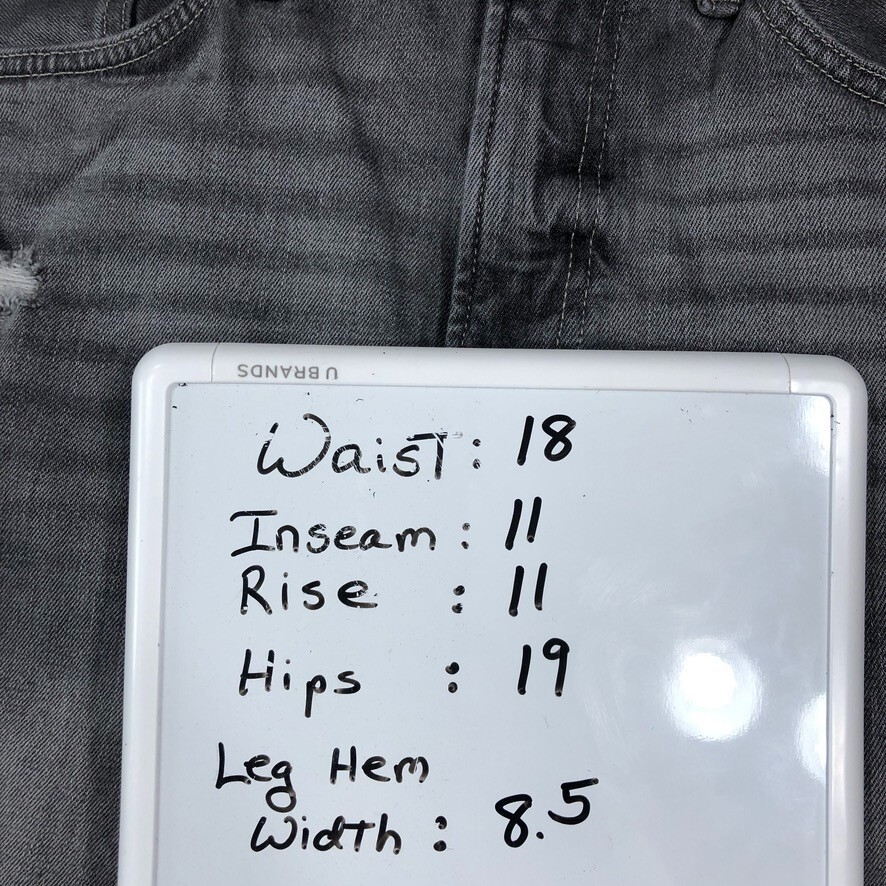 U BRANDS
Waist: 18
Inseam: 11
Rise : 11
Hips : 19
Leg Hem
Width: 8.5